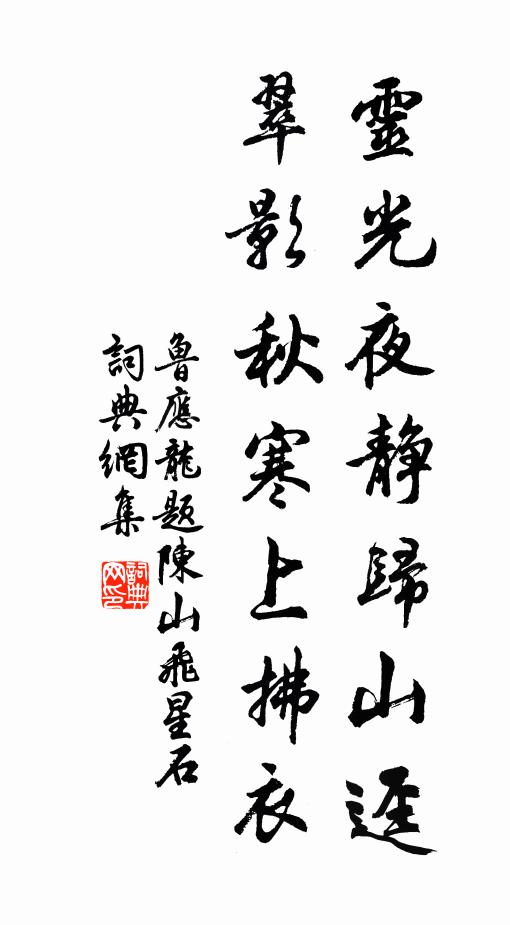 靈光夜靜歸山逕
翠影秋寒上拂衣
魯應龍題陳山飛星石
詞典網集
詞典网印